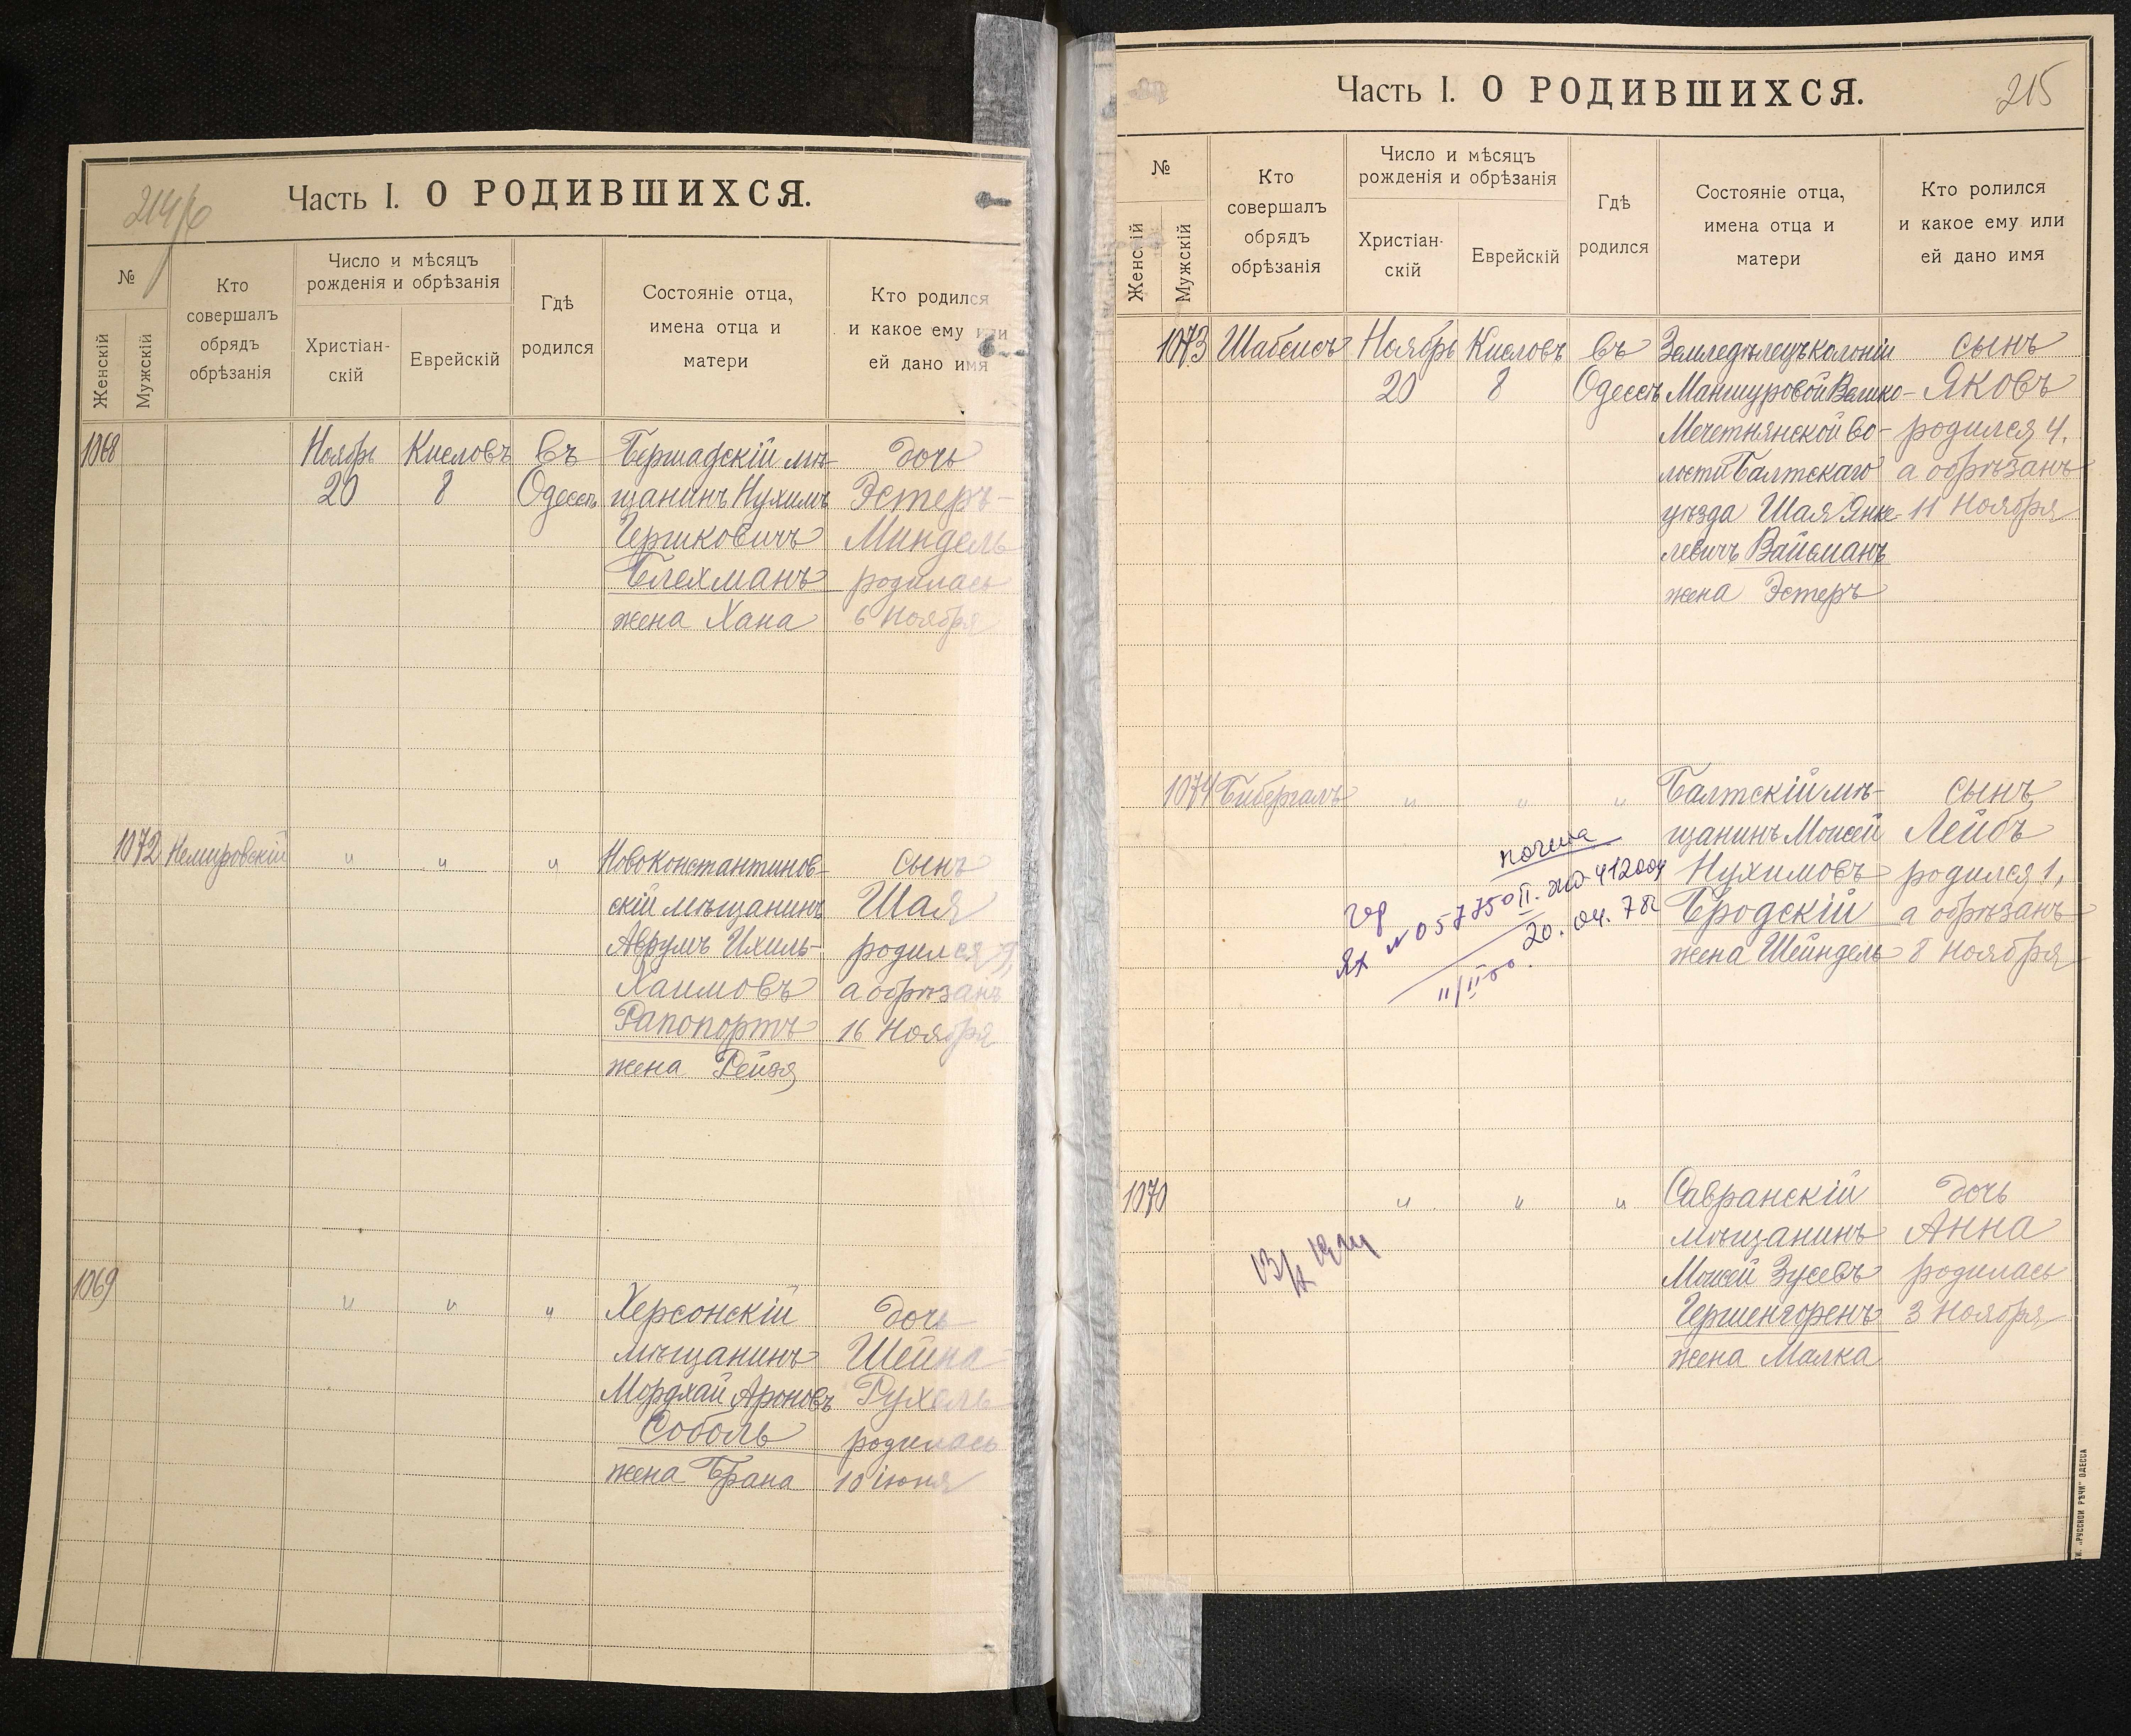 214/б
Часть I. О РОДИВШИХСЯ.
№
Женскій
Мужскій
Кто
совершалъ
обрядъ
обрѣзанія
Число и мѣсяцъ
рожденія и обрѣзанія
Христіан-
скій
Еврейскій
Гдѣ
родился
Состояніе отца,
имена отца и
матери
Кто родился
и какое ему или
ей дано имя
1068
Ноябрь
20
Кисловъ
8
въ
Одессѣ
Бершадскій мѣ-
щанинъ Нухимъ
Гершковичъ
Блехманъ
жена Хана
дочь
Эстеръ-
Миндель
родилась
6 Ноября
1072 Немировскій
" " "
Новоконстантинов-
скій мѣщанинъ
Аврумъ Ихиль-
Хаимовъ
Рапопортъ
жена Рейзя
сынъ
Шая
родился 9,
а обрѣзанъ
16 Ноября
1069
" " "
Херсонскій
мѣщанинъ
Мордхай Ароновъ
Соболь
жена Брана
дочь
Шейна-
Рухель
родилась
10 іюня
215
Часть I. О РОДИВШИХСЯ.
№
Женскій
Мужскій
Кто
совершалъ
обрядъ
обрѣзанія
Число и мѣсяцъ
рожденія и обрѣзанія
Христіан-
скій
Еврейскій
Гдѣ
родился
Состояніе отца,
имена отца и
матери
Кто ролился
и какое ему или
ей дано имя
1073 Шабсисъ
Ноябрь
20
Кисловъ
8
въ
Одессѣ
Земледѣлецъ колоніи
Маншуровой Велико-
Мечетнянской во-
лости Балтскаго
уѣзда Шая Янке-
левичъ Вайсманъ
жена Эстеръ
сынъ
Яковъ
родился 4,
а обрѣзанъ
11 Ноября
1074 Бибергалъ
" " "
Балтскій мѣ-
щанинъ Моисей
Нухимовъ
Бродскій
жена Шейндель
сынъ
Лейбъ
родился 1,
а обрѣзанъ
8 Ноября
20. 04. 78
1070
" " "
Савранскій
мѣщанинъ
Моисей Зусевъ
Гершенгоренъ
жена Малка
дочь
Анна
родилась
3 Ноября
„РУССКОЙ РѢЧИ" ОДЕССА